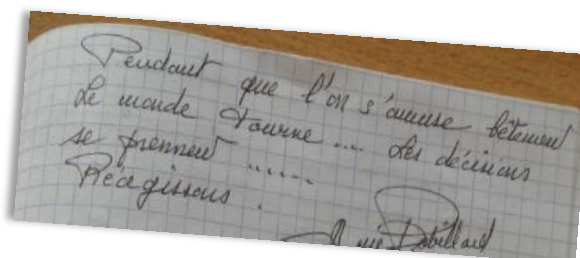 Pendant que l'on s'amuse bêtement
Le monde tourne .... Les décisions
se prennent ......
Réagissons .
Robillard